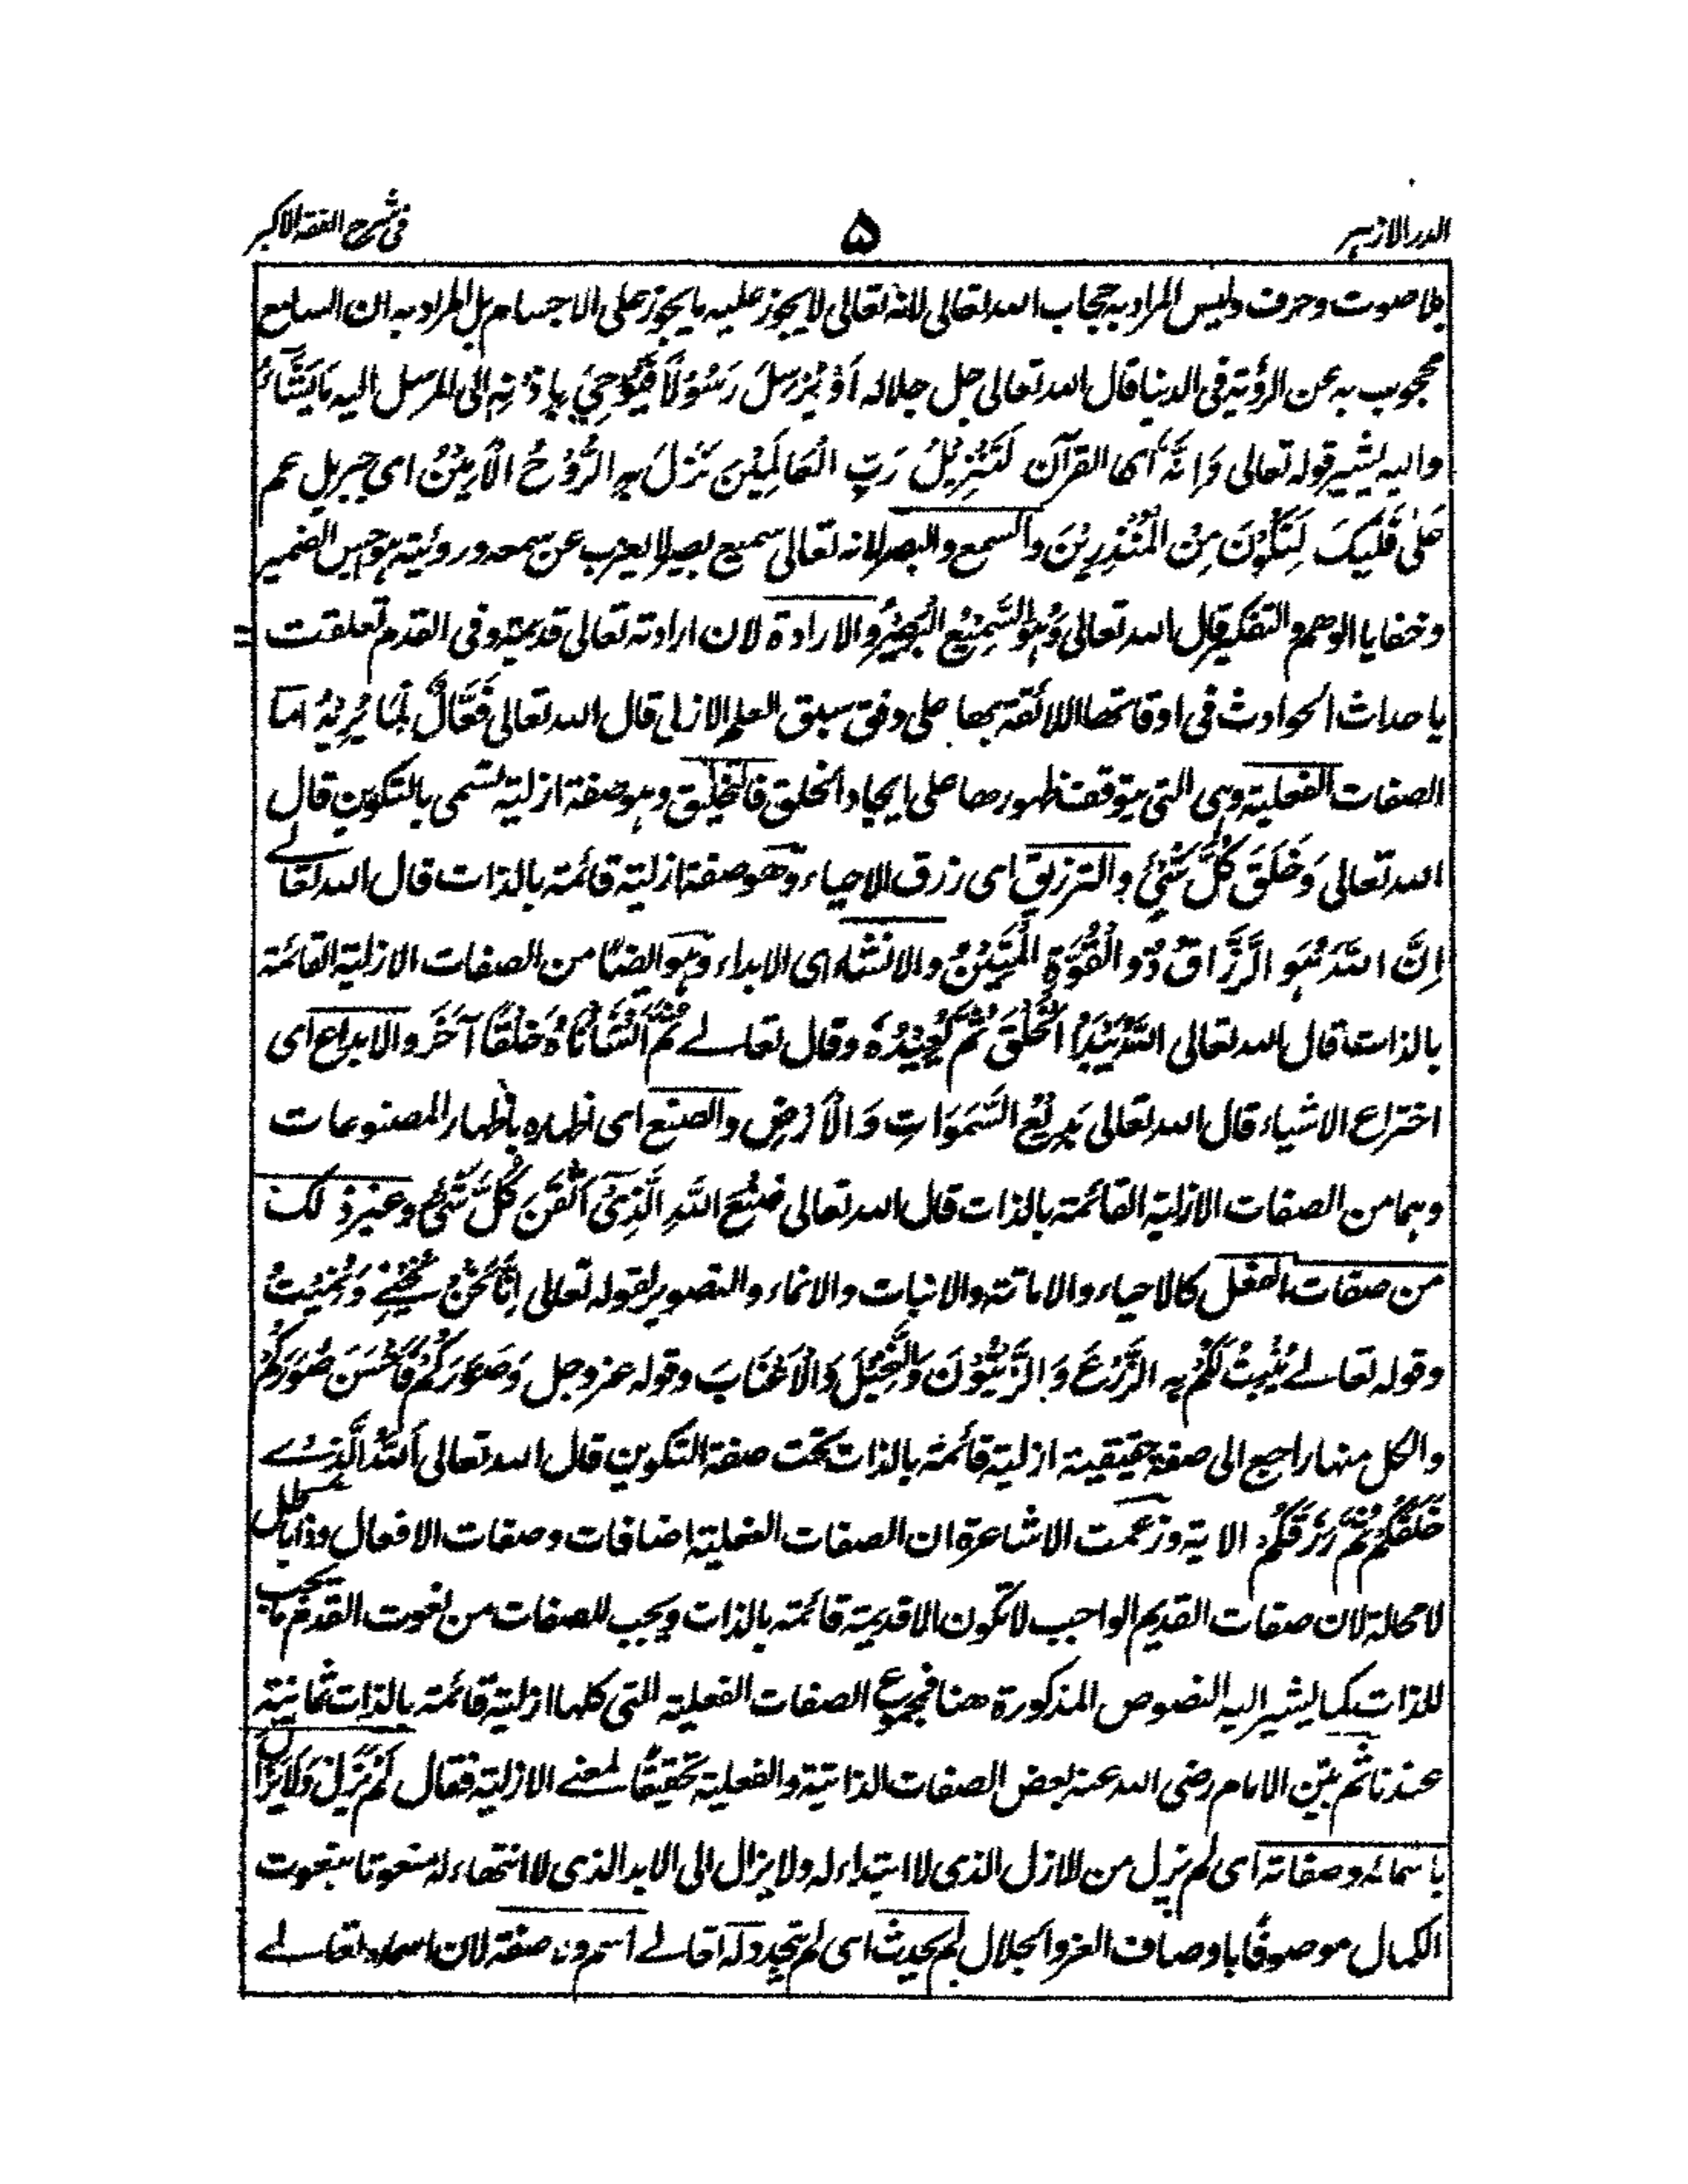 الدر الازهر
۵
فی شرح الفقه الاکبر
بلا صوت وحرف ولیس المراد به حجاب الله تعالی لانه تعالی لا یجوز علیه ما یجوز علی الاجسام بل المراد به ان السامع
محجوب به عن الرؤیة فی الدنیا قال الله تعالی جل جلاله اَوْ یُرْسِلَ رَسُوْلًا فَیُوْحِیَ بِاِذْنِهٖ الی المرسل الیه مَا یَشَآءُ
والیه یشیر قوله تعالی وَاِنَّهٗ ای القرآن لَتَنْزِیْلُ رَبِّ الْعَالَمِیْنَ نَزَلَ بِهِ الرُّوْحُ الْاَمِیْنُ ای جبریل عم
عَلٰی قَلْبِکَ لِتَکُوْنَ مِنَ الْمُنْذِرِیْنَ والسمع والبصر لانه تعالی سمیع بصیر لا یعزب عن سمعه ورؤیته هواجس الضمیر
وخفایا الوهم والتفکیر قال الله تعالی وَهُوَ السَّمِیْعُ الْبَصِیْرُ والارادة لان ارادته تعالی قدیمة وفی القدم تعلقت
باحداث الحوادث فی اوقاتها اللائقة بها علی وفق سبق العلم الازلی قال الله تعالی فَعَّالٌ لِّمَا یُرِیْدُ اما
الصفات الفعلیة وهی التی یتوقف ظهورها علی ایجاد الخلق فالتخلیق وهو صفة ازلیة تسمی بالتکوین قال
الله تعالی وَخَلَقَ کُلَّ شَیْئٍ والترزیق ای رزق الاحیاء وهو صفة ازلیة قائمة بالذات قال الله تعالے
اِنَّ اللّٰهَ هُوَ الرَّزَّاقُ ذُو الْقُوَّةِ الْمَتِیْنُ والانشاء ای الابداء وهو ایضًا من الصفات الازلیة القائمة
بالذات قال الله تعالی اللّٰهُ یَبْدَأُ الْخَلْقَ ثُمَّ یُعِیْدُهٗ وقال تعالے ثُمَّ اَنْشَأْنَاهُ خَلْقًا آخَرَ والابداع ای
اختراع الاشیاء قال الله تعالی بَدِیْعُ السَّمٰوَاتِ وَالْاَرْضِ والصنع ای اظهاره باظهار المصنوعات
وهما من الصفات الازلیة القائمة بالذات قال الله تعالی صُنْعَ اللّٰهِ الَّذِیْ اَتْقَنَ کُلَّ شَیْءٍ وغیر ذلک
من صفات الفعل کالاحیاء والاماتة والانبات والانماء والتصویر لقوله تعالی اِنَّا نَحْنُ نُحْیِیْ وَنُمِیْتُ
وقوله تعالے یُنْبِتُ لَکُمْ بِهِ الزَّرْعَ وَالزَّیْتُوْنَ وَالنَّخِیْلَ وَالْاَعْنَابَ وقوله عزوجل وَصَوَّرَکُمْ فَاَحْسَنَ صُوَرَکُمْ
والکل منها راجع الی صفة حقیقیة ازلیة قائمة بالذات تحت صفة التکوین قال الله تعالی اَللّٰهُ الَّذِیْ
خَلَقَکُمْ ثُمَّ رَزَقَکُمْ الایة وزعمت الاشاعرة ان الصفات الفعلیة اضافات وصفات الافعال وذا باطل
لا محالة لان صفات القدیم الواجب لا تکون الا قدیمة قائمة بالذات ویجب للصفات من نعوت القدم ما یجب
للذات کما یشیر الیه النصوص المذکورة هنا فمجموع الصفات الفعلیة التی کلها ازلیة قائمة بالذات ثمانیة
عندنا ثم بیّن الامام رضی الله عنه بعض الصفات الذاتیة والفعلیة تحقیقًا لمعنے الازلیة فقال لَمْ یَزَلْ وَلَا یَزَالُ
باسمائه وصفاته ای لم یزل من الازل الذی لا ابتداء له ولا یزال الی الابد الذی لا انتهاء له منعوتا بنعوت
الکمال موصوفًا باوصاف العز والجلال لم یحدث ای لم یتجدد له تعالے اسم ولا صفة لان اسماءه تعالے